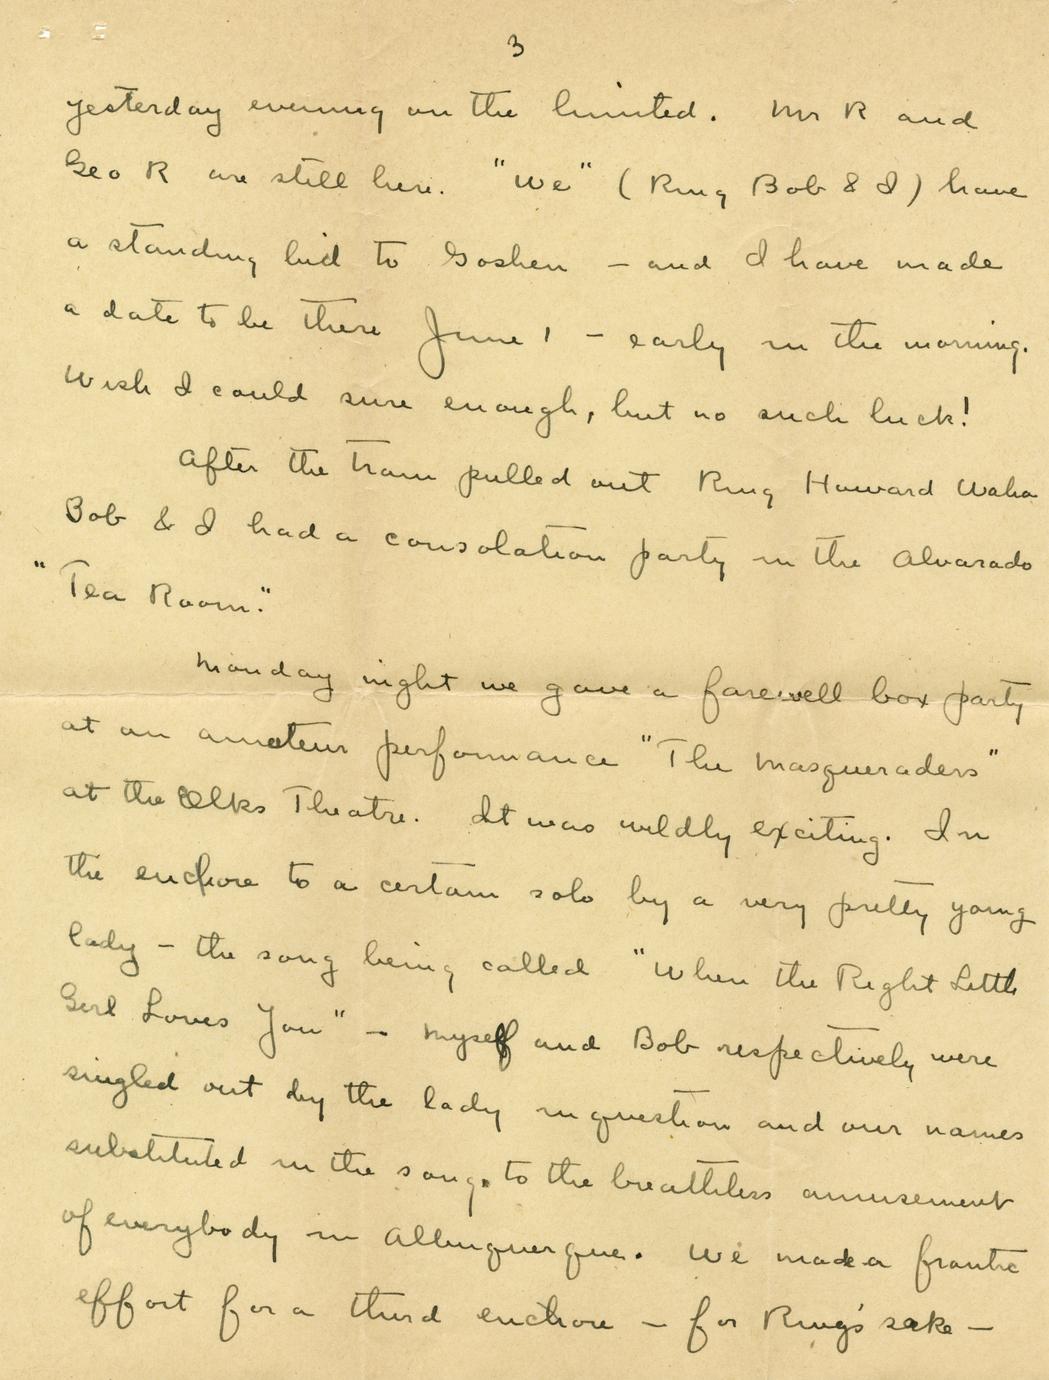 3
yesterday evening on the limited. Mr R and
Geo R are still here. "We" (Ring Bob & I) have
a standing bid to Goshen - and I have made
a date to be there June 1 - early in the morning.
Wish I could sure enough, but no such luck!
After the train pulled out Ring Howard Waha
Bob & I had a consolation party in the Alvarado
"Tea Room."
Monday night we gave a farewell box party
at an amateur performance "The Masqueraders"
at the Elks Theatre. It was wildly exciting. In
the enchore to a certain solo by a very pretty young
lady - the song being called "When the Right Little
Girl Loves You" - myself and Bob respectively were
singled out by the lady in question and our names
substituted in the song, to the breathless amusement
of everybody in Albuquerque. We made a frantic
effort for a third enchore - for Ring's sake -